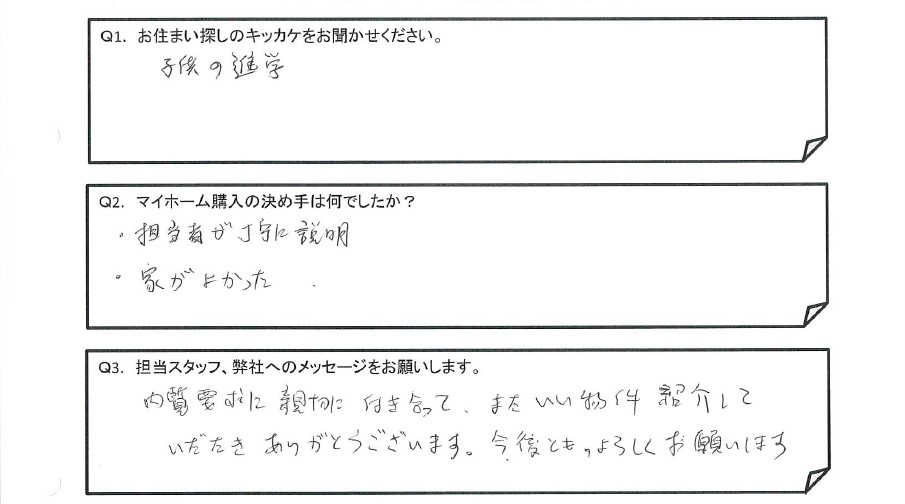 Q1. お住まい探しのキッカケをお聞かせください。
子供の進学
Q2. マイホーム購入の決め手は何でしたか？
・担当者が丁寧に説明
・家がよかった
Q3. 担当スタッフ、弊社へのメッセージをお願いします。
内覧要求に親切に付き合って、またいい物件紹介して
いただきありがとうございます。今後とも、よろしくお願いします